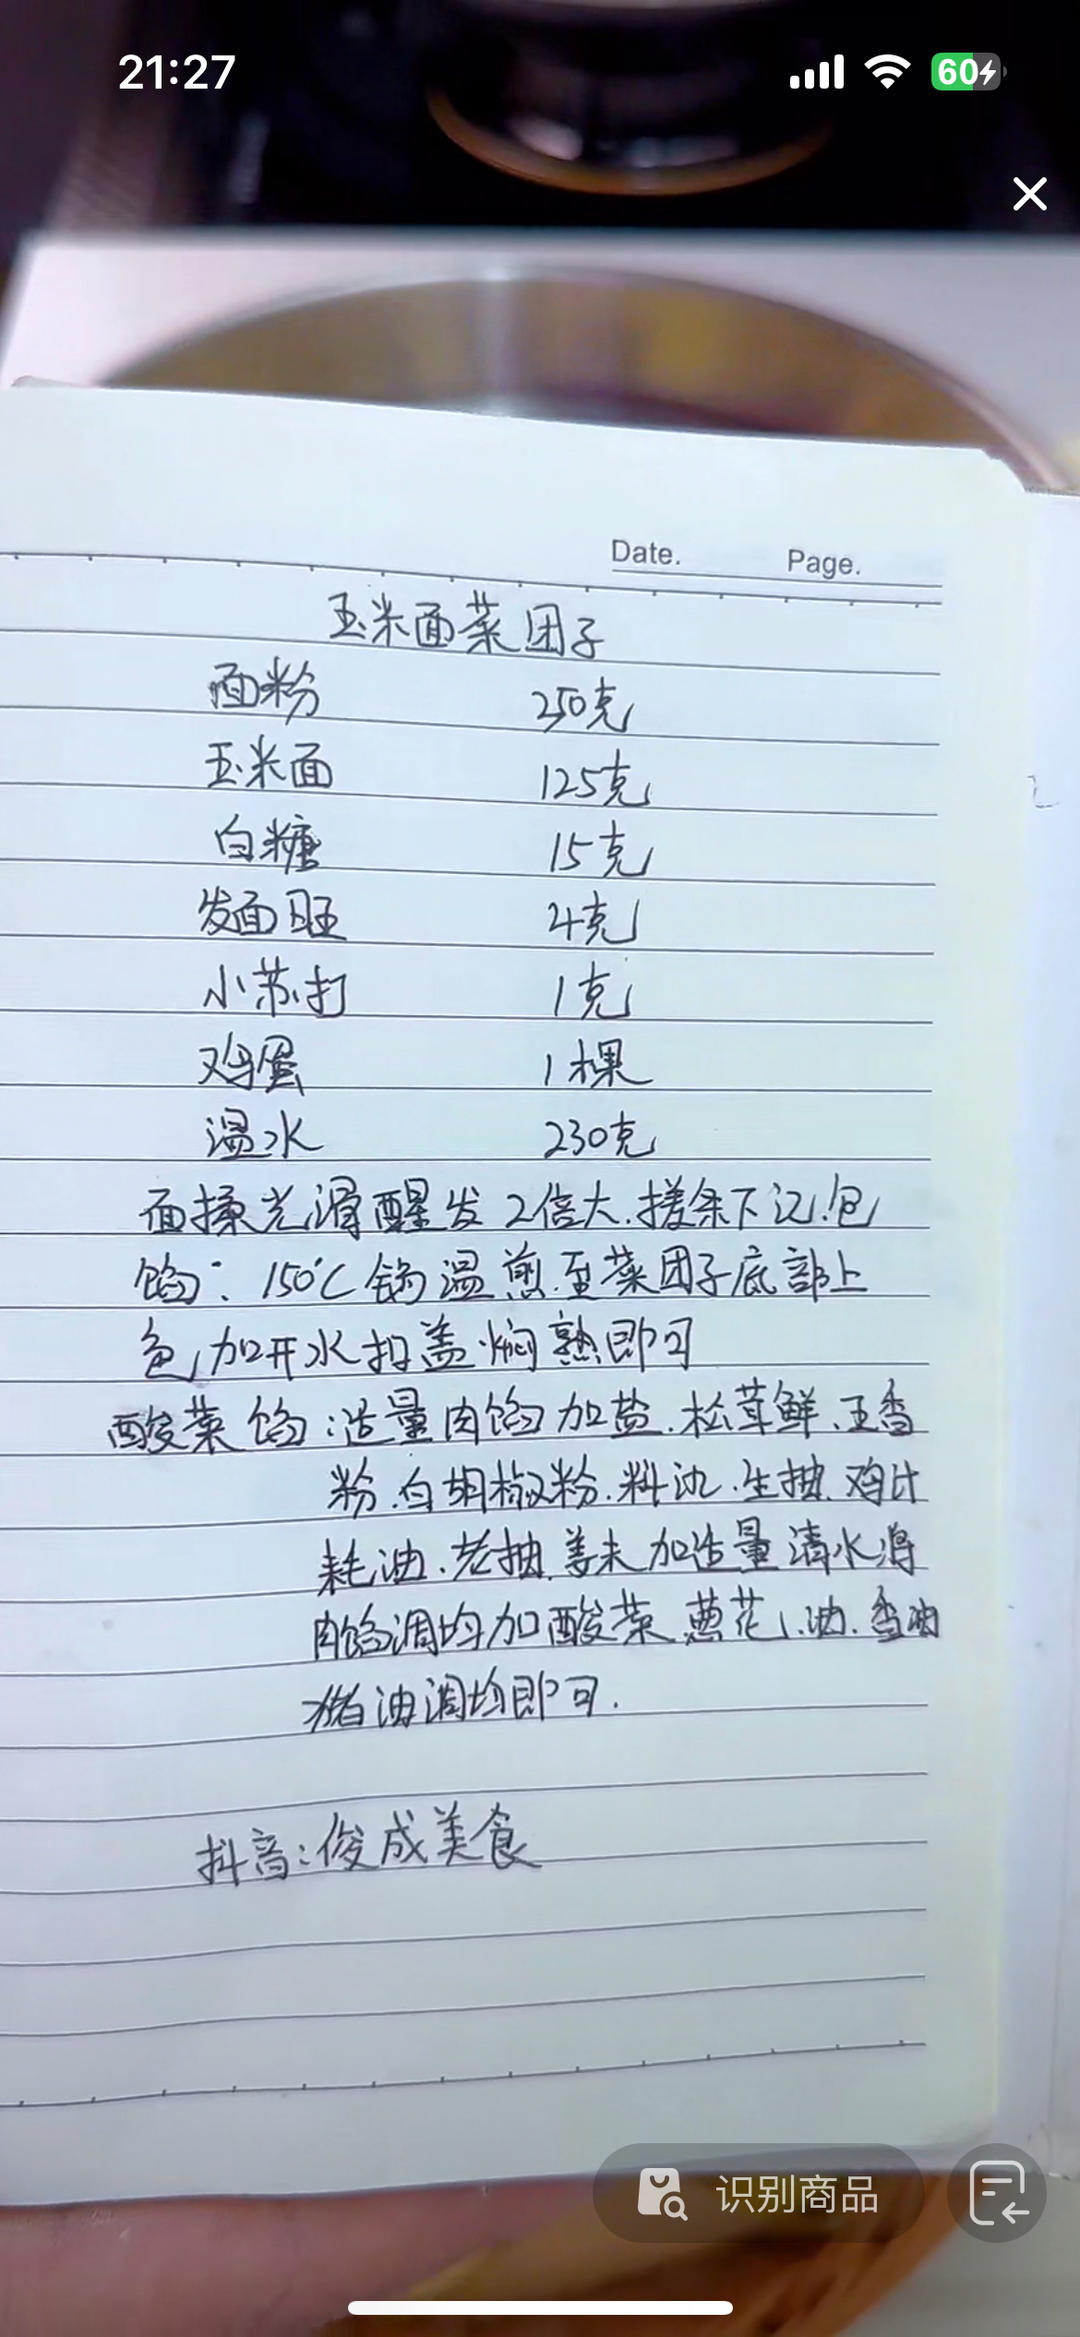 21:27
60
Date. Page.
玉米面菜团子
面粉 250克
玉米面 125克
白糖 15克
发面旺 4克
小苏打 1克
鸡蛋 1棵
温水 230克
面揉光滑醒发2倍大.搓条下记.包
馅:150℃锅温煎.至菜团子底部上
色,加开水扣盖焖熟即可
酸菜馅:适量肉馅加盐.松茸鲜.王香
粉.白胡椒粉.料氿.生抽.鸡汁
耗油.老抽.姜末加适量清水将
肉馅调均加酸菜.葱花.油.香油
猪油调均即可.
抖音:俊成美食
识别商品